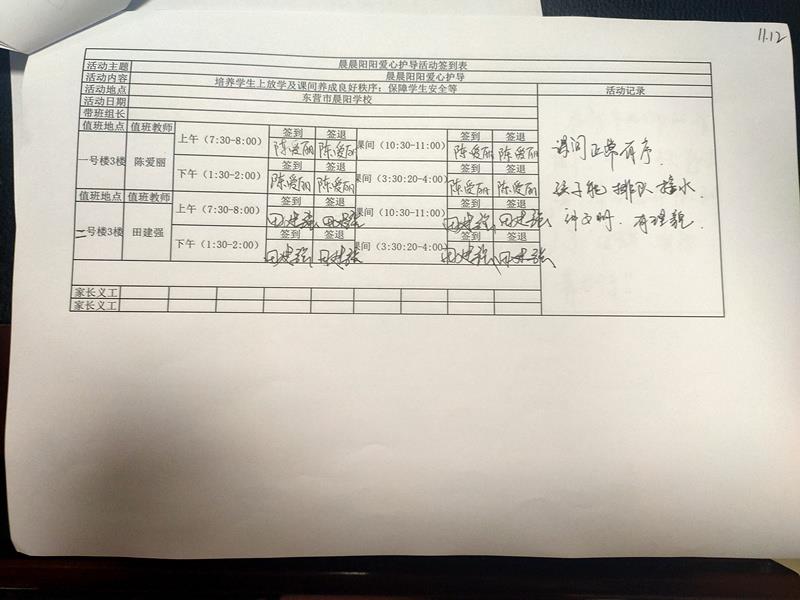 11.12
晨晨阳阳爱心护导活动签到表
活动主题 晨晨阳阳爱心护导
活动内容 培养学生上放学及课间养成良好秩序；保障学生安全等 活动记录
活动地点 东营市晨阳学校
活动日期
带班组长
值班地点 值班教师 签到 签退 签到 签退
一号楼3楼 陈爱丽 上午（7:30-8:00） 陈爱丽 陈爱丽 课间（10:30-11:00） 陈爱丽 陈爱丽
签到 签退 签到 签退
下午（1:30-2:00） 陈爱丽 陈爱丽 课间（3:30:20-4:00） 陈爱丽 陈爱丽
值班地点 值班教师 签到 签退 签到 签退
二号楼3楼 田建强 上午（7:30-8:00） 田建强 田建强 课间（10:30-11:00） 田建强 田建强
签到 签退 签到 签退
下午（1:30-2:00） 田建强 田建强 课间（3:30:20-4:00） 田建强 田建强
家长义工
家长义工
课间正常有序.
孩子能排队接水.
讲文明.有理貌.